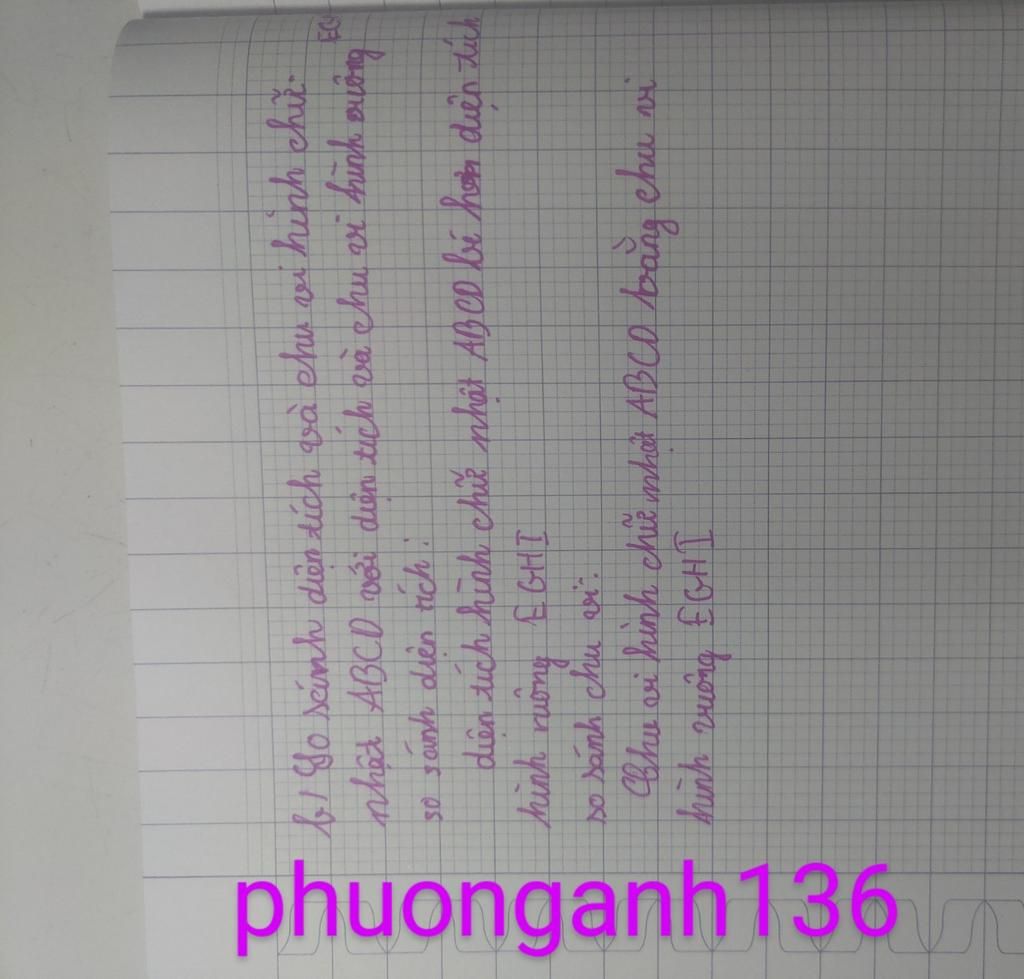 b) So sánh diện tích và chu vi hình chữ
nhật ABCD với diện tích và chu vi hình vuông EG
so sánh diện tích:
diện tích hình chữ nhật ABCD bé hơn diện tích
hình vuông EGHI
so sánh chu vi:
Chu vi hình chữ nhật ABCD bằng chu vi
hình vuông EGHI
phuonganh136